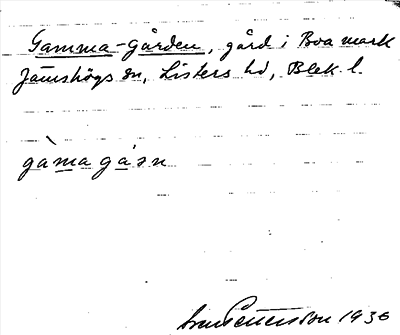 Gamma-gården, gård i Boa mark
Jämshögs sn, Listers hd, Blek. l.
gàmagáən
Pettersson 1936